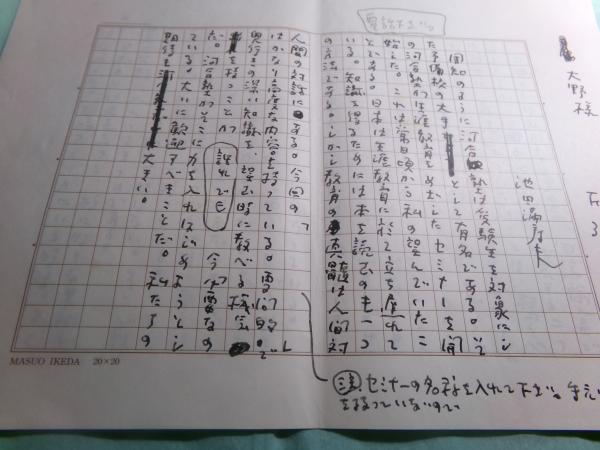 大野様
池田満寿夫
周知のように河合塾は受験生を対象にし
た予備校の大手として有名である。そ
の河合塾が生涯教育をめざしたセミナーを開
始した。これは常日頃から私の望んでいたこ
とである。日本は生涯教育に於て立ち遅れて
いる。知識を得るためには本を読むのも一つ
の方法であるが、教育の真髄は人間対
人間の対話にある。今回の「 」
はかなり高度な内容を持っている。専門的で
奥行きの深い知識を、望む時に教へる機会
を持つことが誰れでも今必要なの
だ。河合塾がそこに力を入れはじめようとし
ている。大いに歓迎すべきことだ。私たちの
期待も大きい。
注 セミナーの名称を入れて下さい。
を持っていないので
MASUO IKEDA 20×20